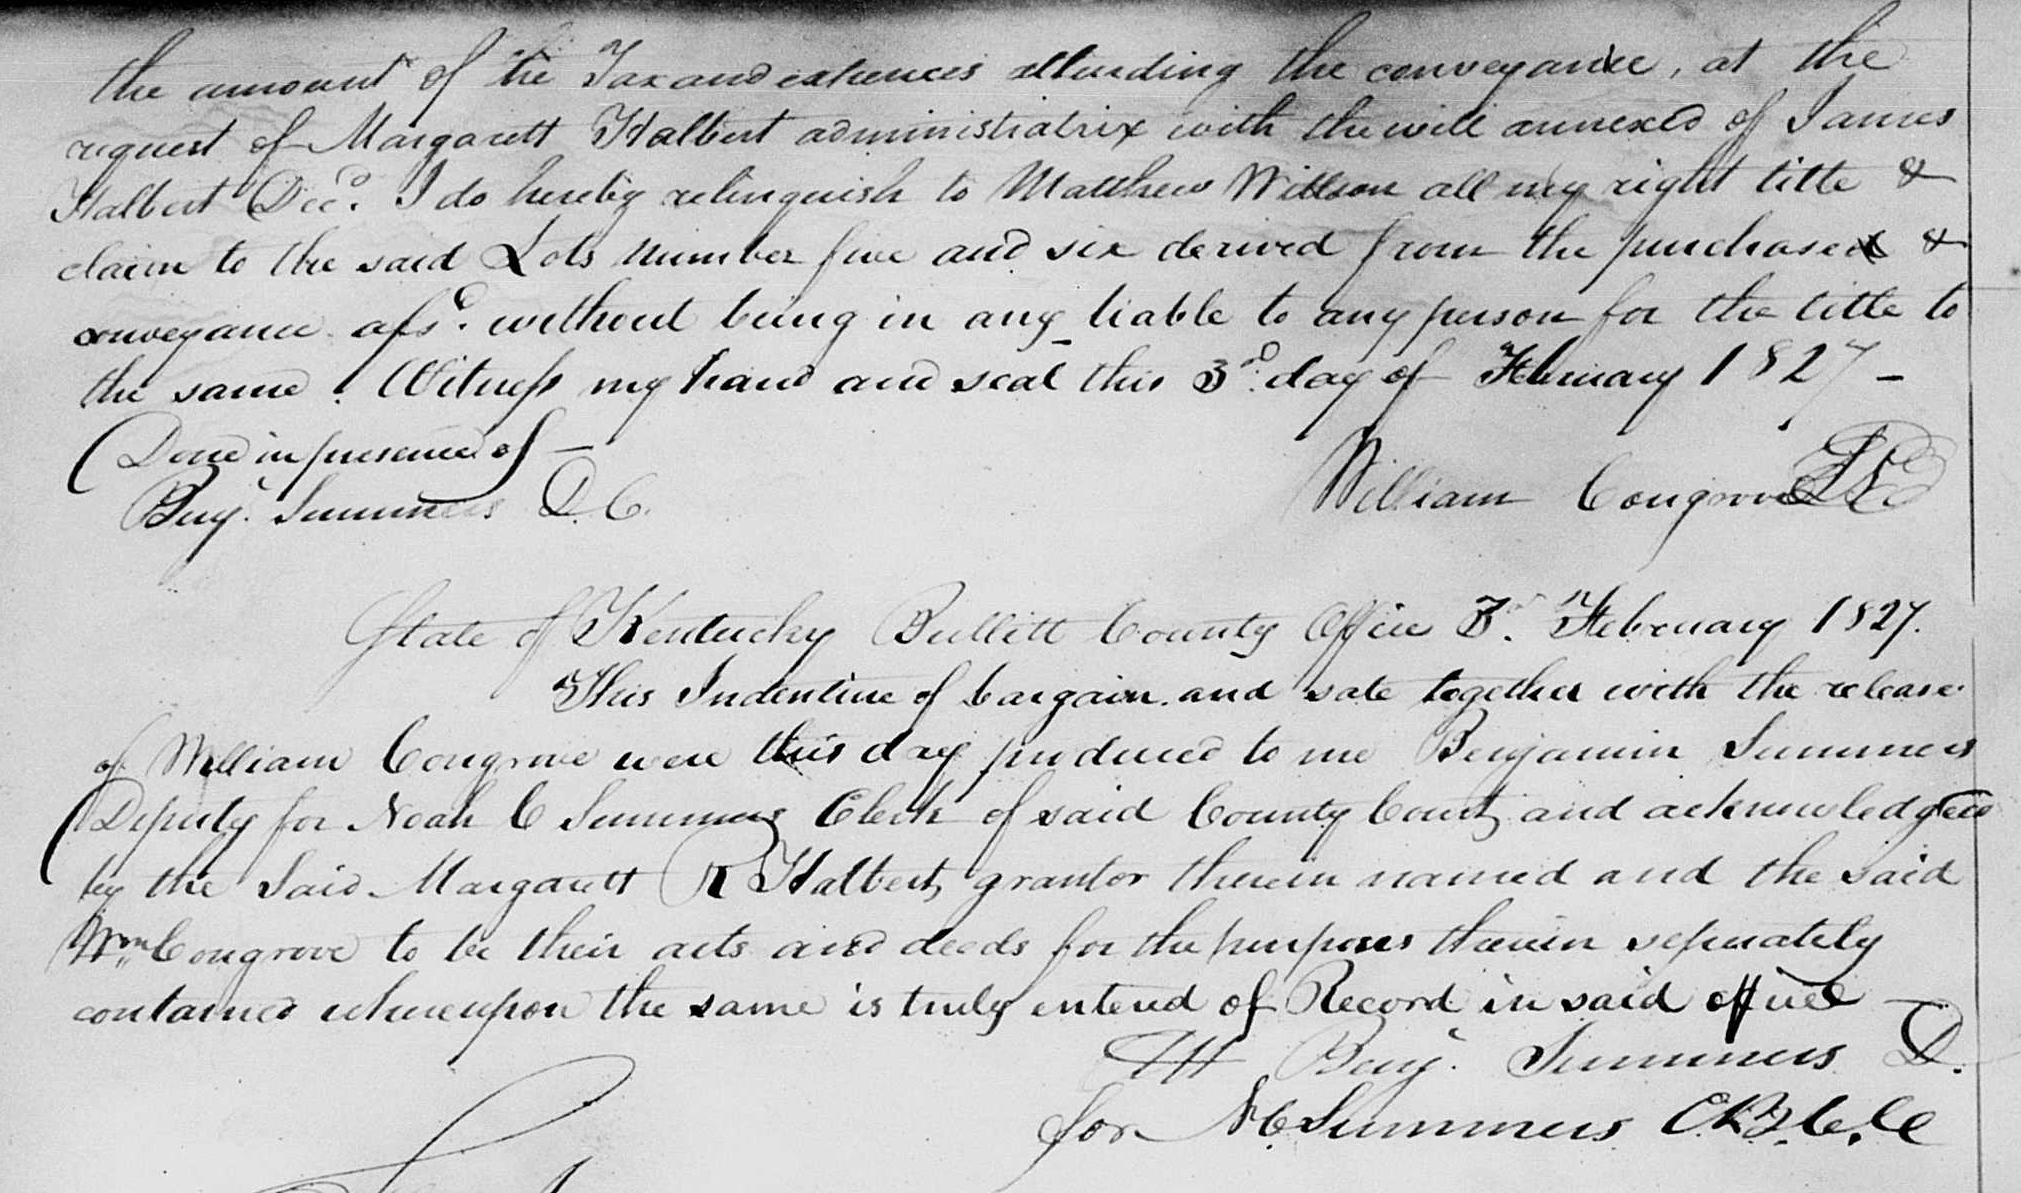 the amount of the Tax and expences attending the conveyance, at the
request of Margarett Halbert administratrix with the will annexed of James
Halbert Decd. I do hereby relinquish to Matthew Willson all my right title &
claim to the said Lots number five and six derived from the purchase &
conveyance afsd. without being in any liable to any person for the title to
the same. Witness my hand and seal this 3rd. day of February 1827 -
Done in presence of -
Benj. Summers D. C.
William Congrove
State of Kentucky Bullitt County Office 3rd. February 1827.
This Indenture of bargain and sale together with the release
of William Congrove were this day produced to me Benjamin Summers
Deputy for Noah C Summers Clerk of said County Court and acknowledged
by the Said Margarett R Halbert, grantor therein named and the said
Wm. Congrove to be their acts and deeds for the purposes therein seperately
contained whereupon the same is truly entered of Record in said office -
Att Benj. Summers D.
for N C. Summers C. B. C. C